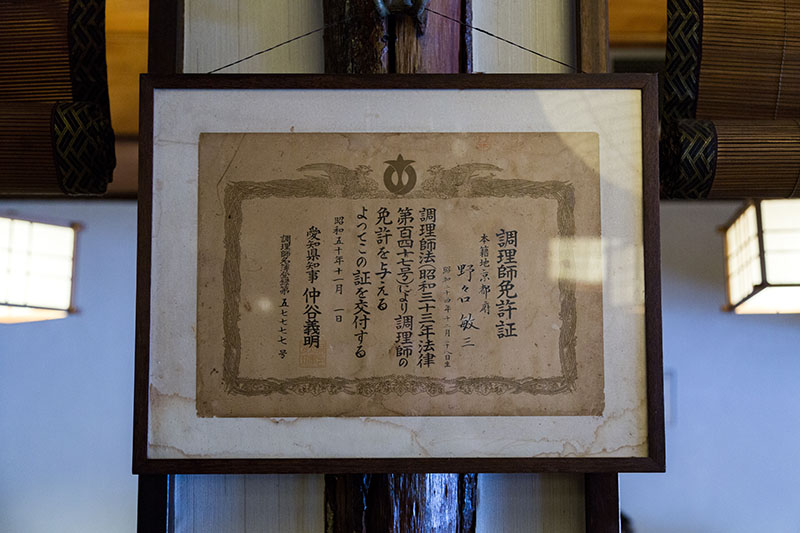 調理師免許証
本籍地 京都府
野々口敏三
調理師法(昭和三十三年法律
第百四十七号)により調理師の
免許を与える
よつてこの証を交付する
昭和五十年十一月一日
愛知県知事 仲谷義明
調理師名簿登録第五七七七七号